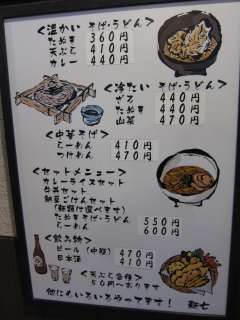 <温かい そば・うどん>
たぬき 360円
天ぷら 410円
カレー 440円
<冷たい そば・うどん>
ざる 440円
たぬき 440円
山菜 470円
<中華そば>
らーめん 410円
つけめん 470円
<セットメニュー>
カレーライスセット
丼丼セット
納豆ごはんセット
(麺類が選べます)
たぬきそばうどん 550円
らーめん 600円
<飲み物>
ビール(中瓶) 470円
日本酒 410円
<天ぷら各種>
50円〜あります
他にもいろいろやってます! 弥七